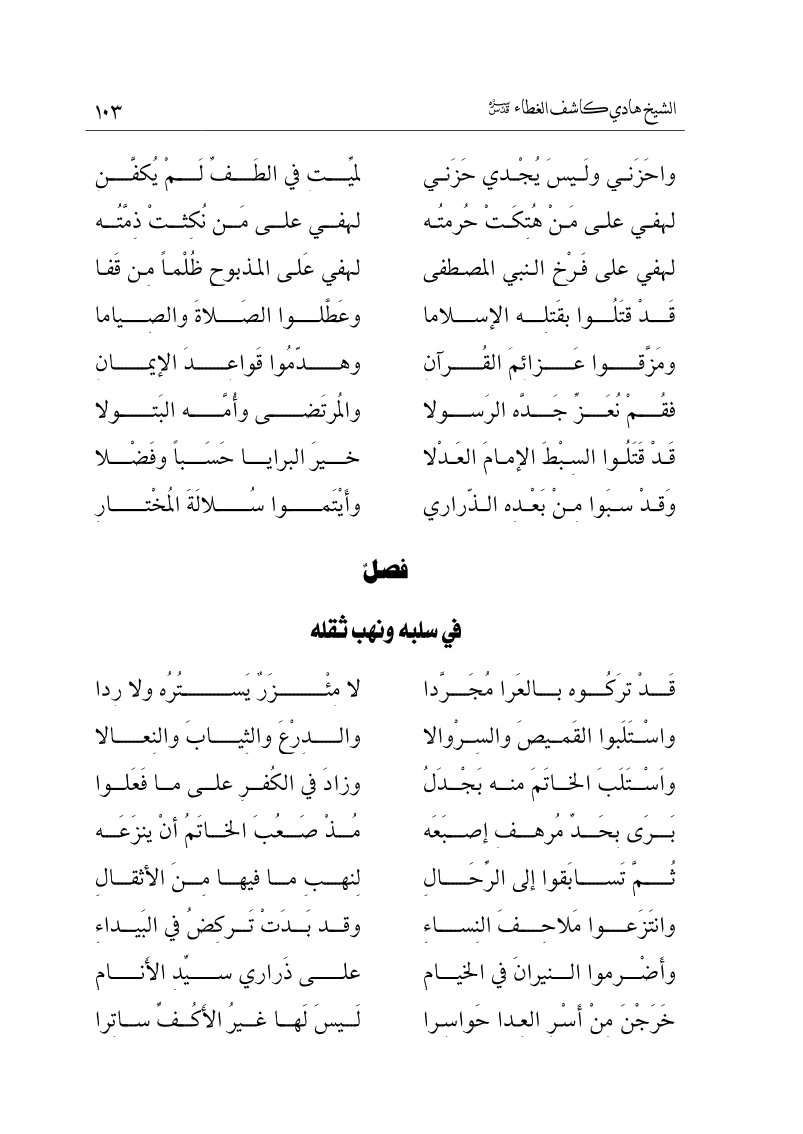 الشيخ هادي كاشف الغطاء قدس سره ١٠٣
واحَزَنـي ولَـيسَ يُجْـدي حَزَنـي لميِّـت في الطَـفِّ لَـمْ يُكفَّـن
لهفـي علـى مَـنْ هُتِكَـتْ حُرمتُـه لهفـي علـى مَـن نُكثـتْ ذمَّتُـه
لهفي على فَـرْخ النبي المصطفى لهفي عَلى المذبوح ظُلْماً من قَفا
قَـدْ قتَلُـوا بقَتلـه الإسـلاما وعَطَّلـوا الصَـلاةَ والصـياما
ومَزَّقـوا عَـزائمَ القُـرآن وهـدّمُوا قَواعـدَ الإيمـان
فقُـمْ نُعَـزِّ جَـدَّه الرَسـولا والمُرتَضـى وأُمَّـه البَتـولا
قَـدْ قَتَلُـوا السـبْطَ الإمـامَ العَـدْلا خـيرَ البرايـا حَسَـباً وفَضْـلا
وَقَـدْ سـبَوا مـنْ بَعْـده الـذّراري وأيْتَمـوا سُـلالَةَ المُخْتـار
فصلٌ
في سلبه ونهب ثقله
قَـدْ تركُـوه بـالعَرا مُجَـرَّدا لا مئْـزَرٌ يَسـتُرُه ولا ردا
واسْـتَلَبوا القَمـيصَ والسـرْوالا والـدرْعَ والثيـابَ والنعـالا
واَسْـتَلَبَ الخـاتَمَ منـه بَجْـدَلُ وزادَ في الكُفـرِ علـى مـا فَعَلـوا
بَـرَى بحَـدِّ مُرهـف إصـبَعَه مُـذْ صَـعُبَ الخـاتمُ أنْ ينزَعَـه
ثُـمَّ تَسـابَقوا إلى الرِّحَـال لنهـب مـا فيهـا مـنَ الأثقـال
وانتَزَعـوا مَلاحـفَ النسـاء وقـد بَـدَتْ تَـركضُ في البَيـداء
وأضْـرموا الـنيرانَ في الخيـام علـى ذَراري سـيِّد الأنـام
خَرَجْـنَ مِـنْ أَسْـرِ العـدا حَواسـرا لَـيسَ لَهـا غـيرُ الأكُـفِّ سـاترا